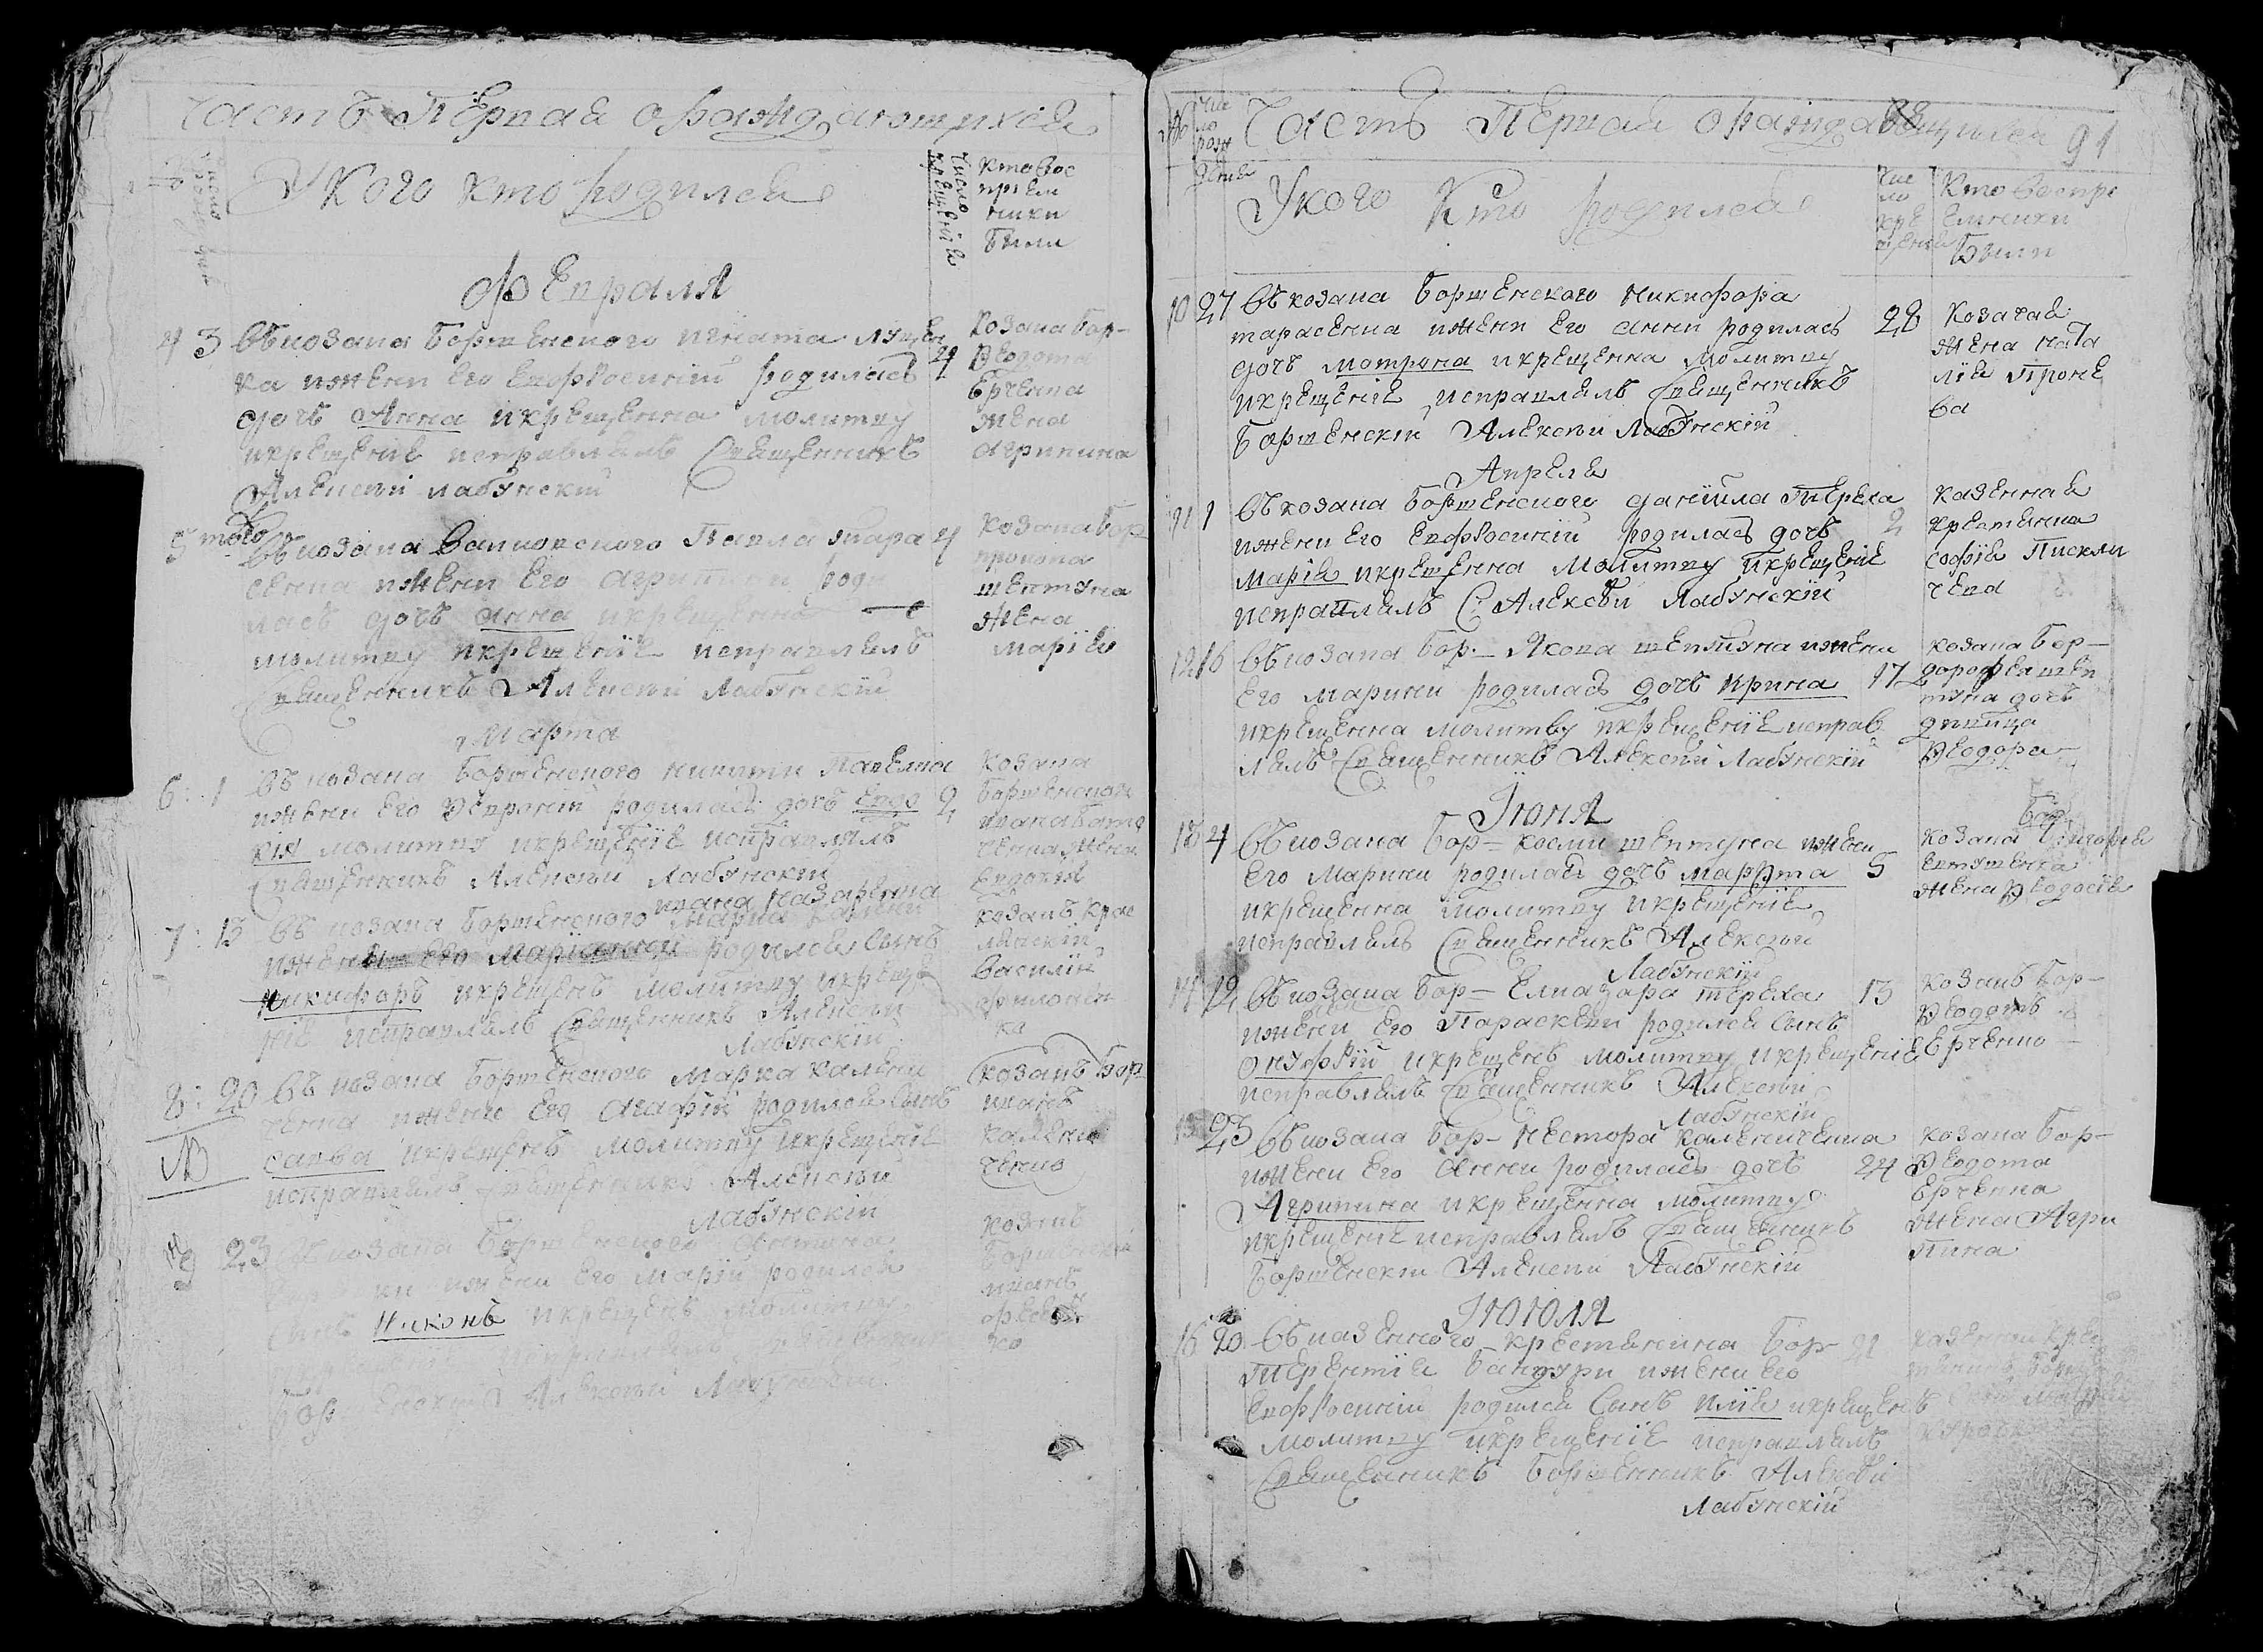 Часть Первая о раждающихся
Число рожденія
У кого кто родился
Число крещенія
Кто вос
прiем
ники
были
Февраля
4 3 Въ козака борщенского игната луцен
ка ижени его Евфросинiи родилась
дочь Анна и крещенна молитву
и крещенiе исправлялъ Священникъ
Алексѣй Лабунскiй
4
Козака бор-
Ѳеодота
Ерченка
жена
Агрипина
5 того Въ козака Павла Тара
сенка ижени его роди
лась дочь анна и крещенна
молитву и крещенiе исправлялъ
Священникъ Алексѣй Лабунскiй
4
козака бор
прокопа
шептуна
жена
Марiя
Марта
6: 1 Въ козака борщенского никити Павелка
ижени его Ѳевронiи родилась дочь Евдо
кiя молитву и крещенiе исправлялъ
Священникъ Алексѣй Лабунскiй
2
козака
борщенског
ивана
жена
Евдокiя
7: 13 Въ козака борщенского ивана назаренка
ижени его родился Сынъ
Никифоръ и крещенъ молитву и креще
нiе исправлялъ Священникъ Алексѣй
Лабунскiй
козакъ
Василiй
филонен
ко
8: 20 Въ козака борщенского Марка калени
ченка ижени его Агафiи родился Сынъ
Сава и крещенъ молитву и крещенiе
исправлялъ Священникъ Алексѣй
Лабунскiй
козакъ бор
иванъ
калени
ченко
9 23 Въ козака борщенского
ижени его Марiи родился
Сынъ Никонъ и крещенъ молитву
исправлялъ
Алексѣй Лабунскiй
козакъ
борщенскiй
иванъ
ко
№
Чис
ло
рож
денiя
Часть Первая о раждающихся 91
У кого Кто родился
Чис
ло
кре
щенiя
Кто воспрi
емники
Были
10 27 Въ козака борщенского никифора
тарасенка ижени его анни родилась
дочь мотрона и крещенна молитву
и крещенiе исправлялъ Священникъ
борщенскiй Алексѣй Лабунскiй
28
козачая
жена ната
лiя Проне
ва
Апреля
11 1 Въ козака борщенского данiила Тереха
ижени его Евфросинiи родилась дочь
Марiя и крещенна молитву и крещенiе
исправлялъ С: Алексѣй Лабунскiй
2
казенная
крестянка
софiя Пискли
чева
12 16 Въ козака бор- Якова шептуна ижени
его марини родилась дочь ирина
и крещенна молитву и крещенiе исправ
лялъ Священникъ Алексѣй Лабунскiй
17
козака бор-
дорофея шеп
туна дочь
двица
Ѳеодора
Iюня
13 4 Въ козака бор- косми шептуна ижени
его марини родилась дочь марѳта
и крещенна молитву и крещенiе
исправлялъ Священникъ Алексѣй
Лабунскiй
5
бор
козака григорiя
Евтушенка
жена Ѳеодосiя
14 12 Въ козака бор- Елиазара тереха
ижени его Параскеви родился Сынъ
онуфрiй и крещенъ молитву и крещенiе
исправлялъ Священникъ Алексѣй
Лабунскiй
13
козакъ бор-
Ѳеодотъ
Ерченко
15 23 Въ козака бор- нестора каленiченка
ижени его анни родилась дочь
Агрипина и крещенна молитву
и крещенiе исправлялъ Священникъ
борщенскiй Алексѣй Лабунскiй
24
козака бор-
Ѳеодота
Ерченка
жена Агри
пина
Iюля
16 20 Въ казенного крестянина бор-
Терентiя бандури ижени его
Евфросинiи родился Сынъ илiя и крещенъ
молитву и крещенiе исправлялъ
Священникъ борщенникъ Алексѣй
Лабунскiй
21